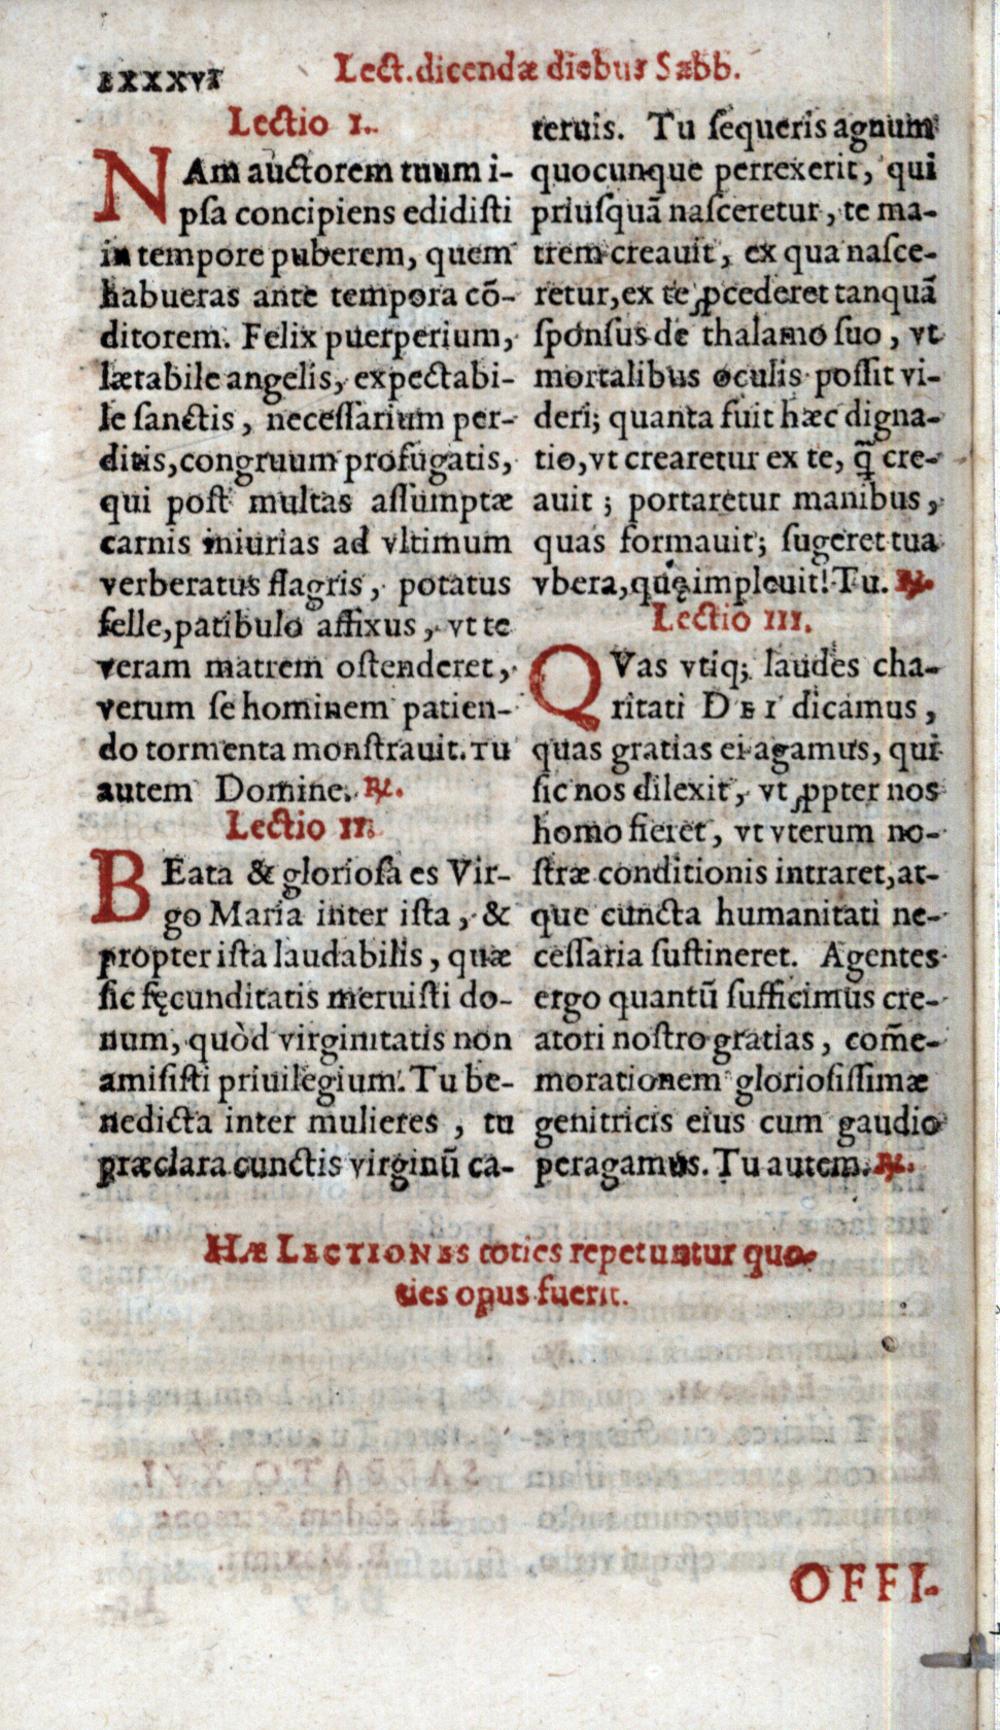 LXXXVI
Lect. dicendæ diebus Sabb.
Lectio I.
NAm auctorem tuum i-
psa concipiens edidisti
in tempore puberem, quem
habueras ante tempora cō-
ditorem. Felix puerperium,
lætabile angelis, expectabi-
le sanctis, necessarium per-
ditis, congruum profugatis,
qui post multas assumptæ
carnis iniurias ad vltimum
verberatus flagris, potatus
felle, patibulo affixus, vt te
veram matrem ostenderet,
verum se hominem patien-
do tormenta monstrauit. Tu
autem Domine. ℟.
Lectio II.
BEata & gloriosa es Vir-
go Maria inter ista, &
propter ista laudabilis, quæ
sic fęcunditatis meruisti do-
num, quòd virginitatis non
amisisti priuilegium. Tu be-
nedicta inter mulieres, tu
præclara cunctis virginū ca-
teruis. Tu sequeris agnum
quocunque perrexerit, qui
priusquā nasceretur, te ma-
trem creauit, ex qua nasce-
retur, ex te ꝓcederet tanquā
sponsus de thalamo suo, vt
mortalibus oculis possit vi-
deri; quanta fuit hæc digna-
tio, vt crearetur ex te, q̃ cre-
auit; portaretur manibus,
quas formauit; sugeret tua
vbera, quę impleuit! Tu. ℟.
Lectio III.
QVas vtiq; laudes cha-
ritati DEI dicamus,
quas gratias ei agamus, qui
sic nos dilexit, vt ꝓpter nos
homo fieret, vt vterum no-
stræ conditionis intraret, at-
que cuncta humanitati ne-
cessaria sustineret. Agentes
ergo quantū sufficimus cre-
atori nostro gratias, com̃e-
morationem gloriosissimæ
genitricis eius cum gaudio
peragamus. Tu autem. ℟.
HÆ LECTIONES toties repetuntur quo-
ties opus fuerit.
OFFI-